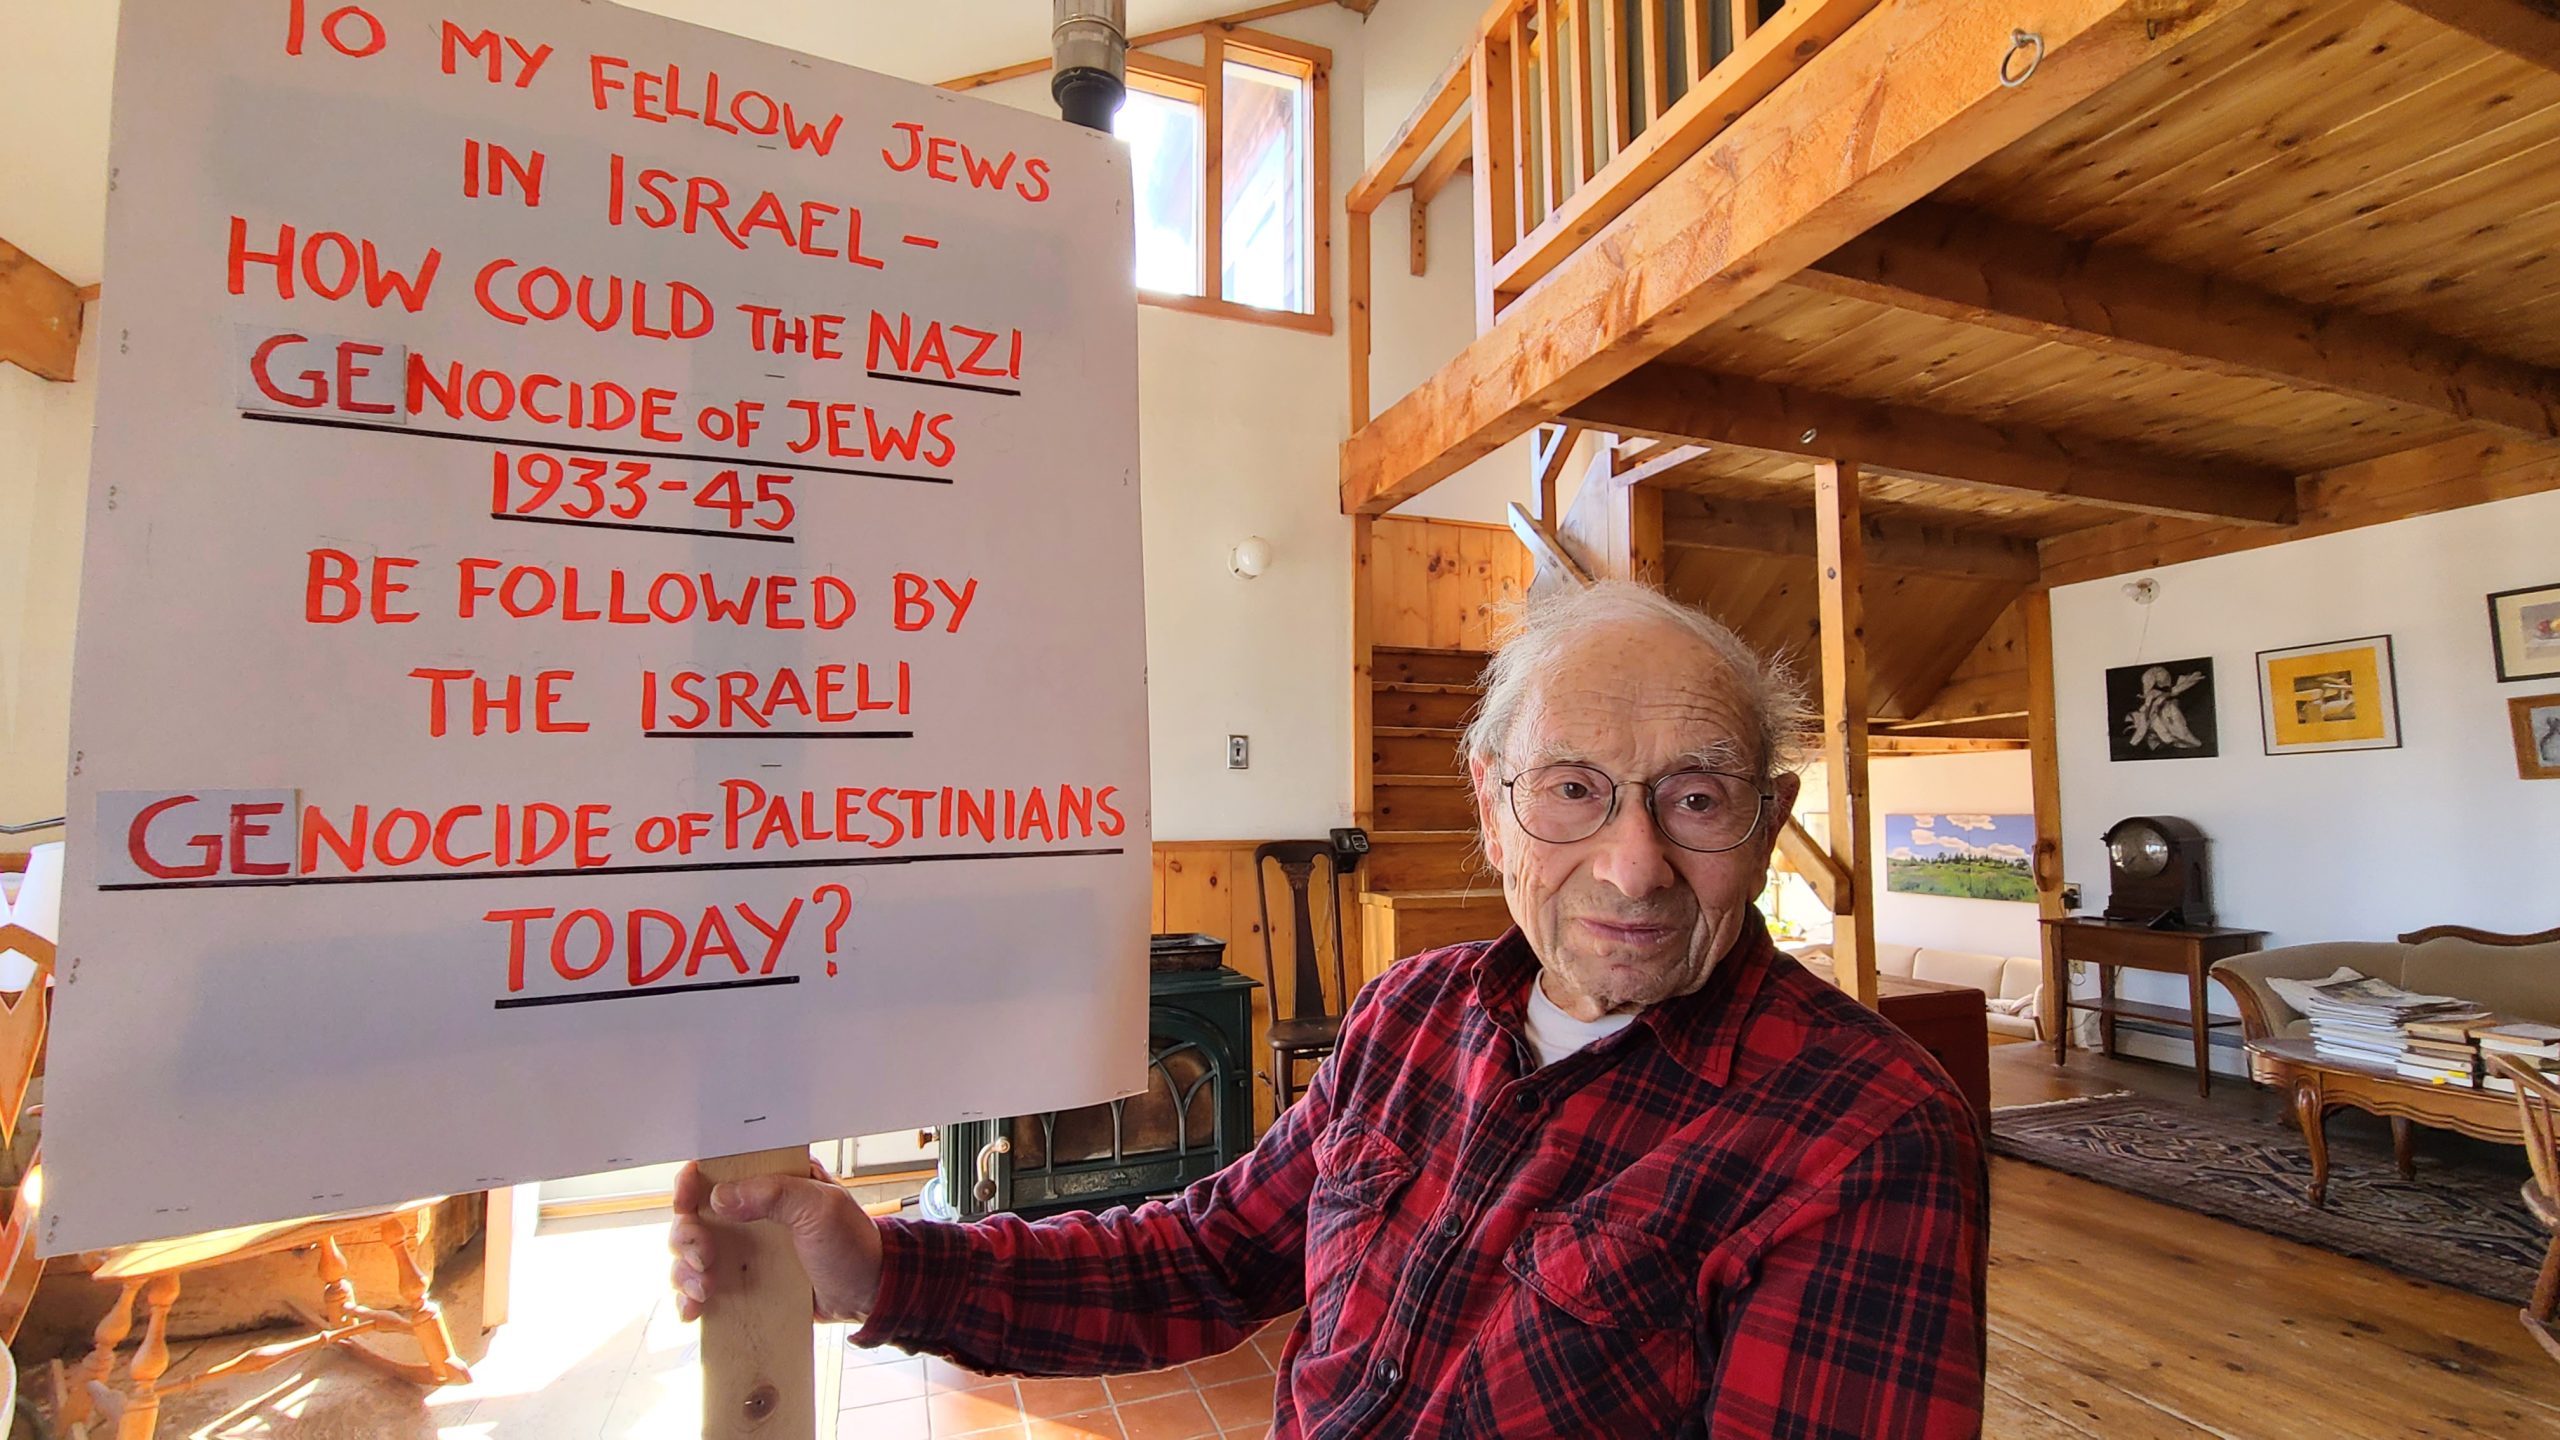 TO MY FELLOW JEWS
IN ISRAEL –
HOW COULD THE NAZI
GENOCIDE OF JEWS
1933-45
BE FOLLOWED BY
THE ISRAELI
GENOCIDE OF PALESTINIANS
TODAY?